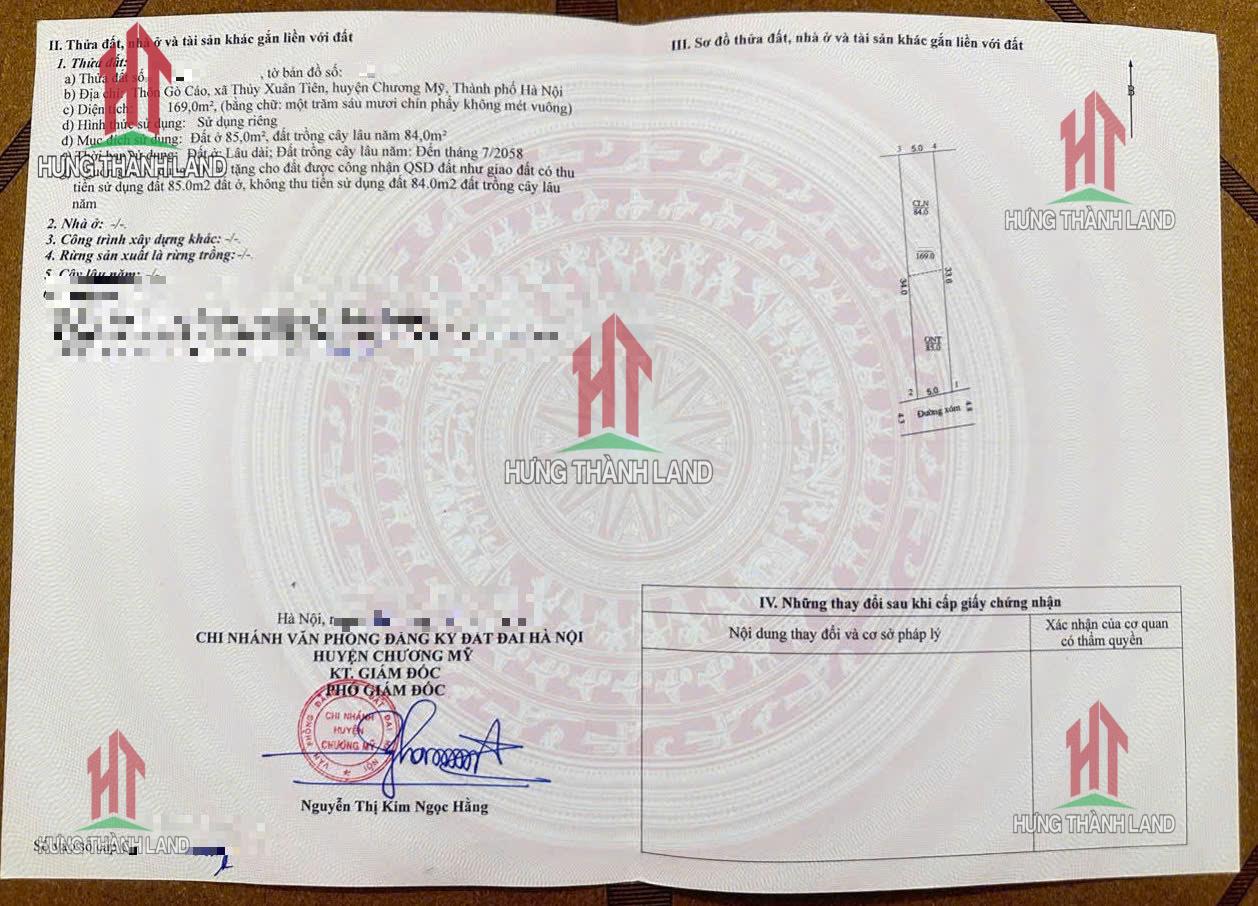 II. Thửa đất, nhà ở và tài sản khác gắn liền với đất
1. Thửa đất:
a) Thửa đất số , tờ bản đồ số:
b) Địa chỉ: Thôn Gò Cáo, xã Thủy Xuân Tiên, huyện Chương Mỹ, Thành phố Hà Nội
c) Diện tích: 169,0m², (bằng chữ: một trăm sáu mươi chín phẩy không mét vuông)
d) Hình thức sử dụng: Sử dụng riêng
đ) Mục đích sử dụng: Đất ở 85,0m², đất trồng cây lâu năm 84,0m²
Đất ở: Lâu dài; Đất trồng cây lâu năm: Đến tháng 7/2058
tặng cho đất được công nhận QSD đất như giao đất có thu
tiền sử dụng đất 85.0m2 đất ở, không thu tiền sử dụng đất 84.0m2 đất trồng cây lâu
năm
2. Nhà ở: -/-.
3. Công trình xây dựng khác: -/-.
4. Rừng sản xuất là rừng trồng: -/-.
5. Cây lâu năm: -/-
Hà Nội,
CHI NHÁNH VĂN PHÒNG ĐĂNG KÝ ĐẤT ĐAI HÀ NỘI
HUYỆN CHƯƠNG MỸ
KT. GIÁM ĐỐC
PHÓ GIÁM ĐỐC
CHI NHÁNH
HUYỆN
CHƯƠNG MỸ
Nguyễn Thị Kim Ngọc Hằng
III. Sơ đồ thửa đất, nhà ở và tài sản khác gắn liền với đất
B
3 5.0 4
CLN
84.0
169.0
34.0 33.6
ONT
85.0
2 5.0 1
4.3 Đường xóm 4.4
IV. Những thay đổi sau khi cấp giấy chứng nhận
Nội dung thay đổi và cơ sở pháp lý
Xác nhận của cơ quan
có thẩm quyền
HT
HƯNG THÀNH LAND
HT
HƯNG THÀNH LAND
HT
HƯNG THÀNH LAND
HT
HƯNG THÀNH LAND
HT
HƯNG THÀNH LAND